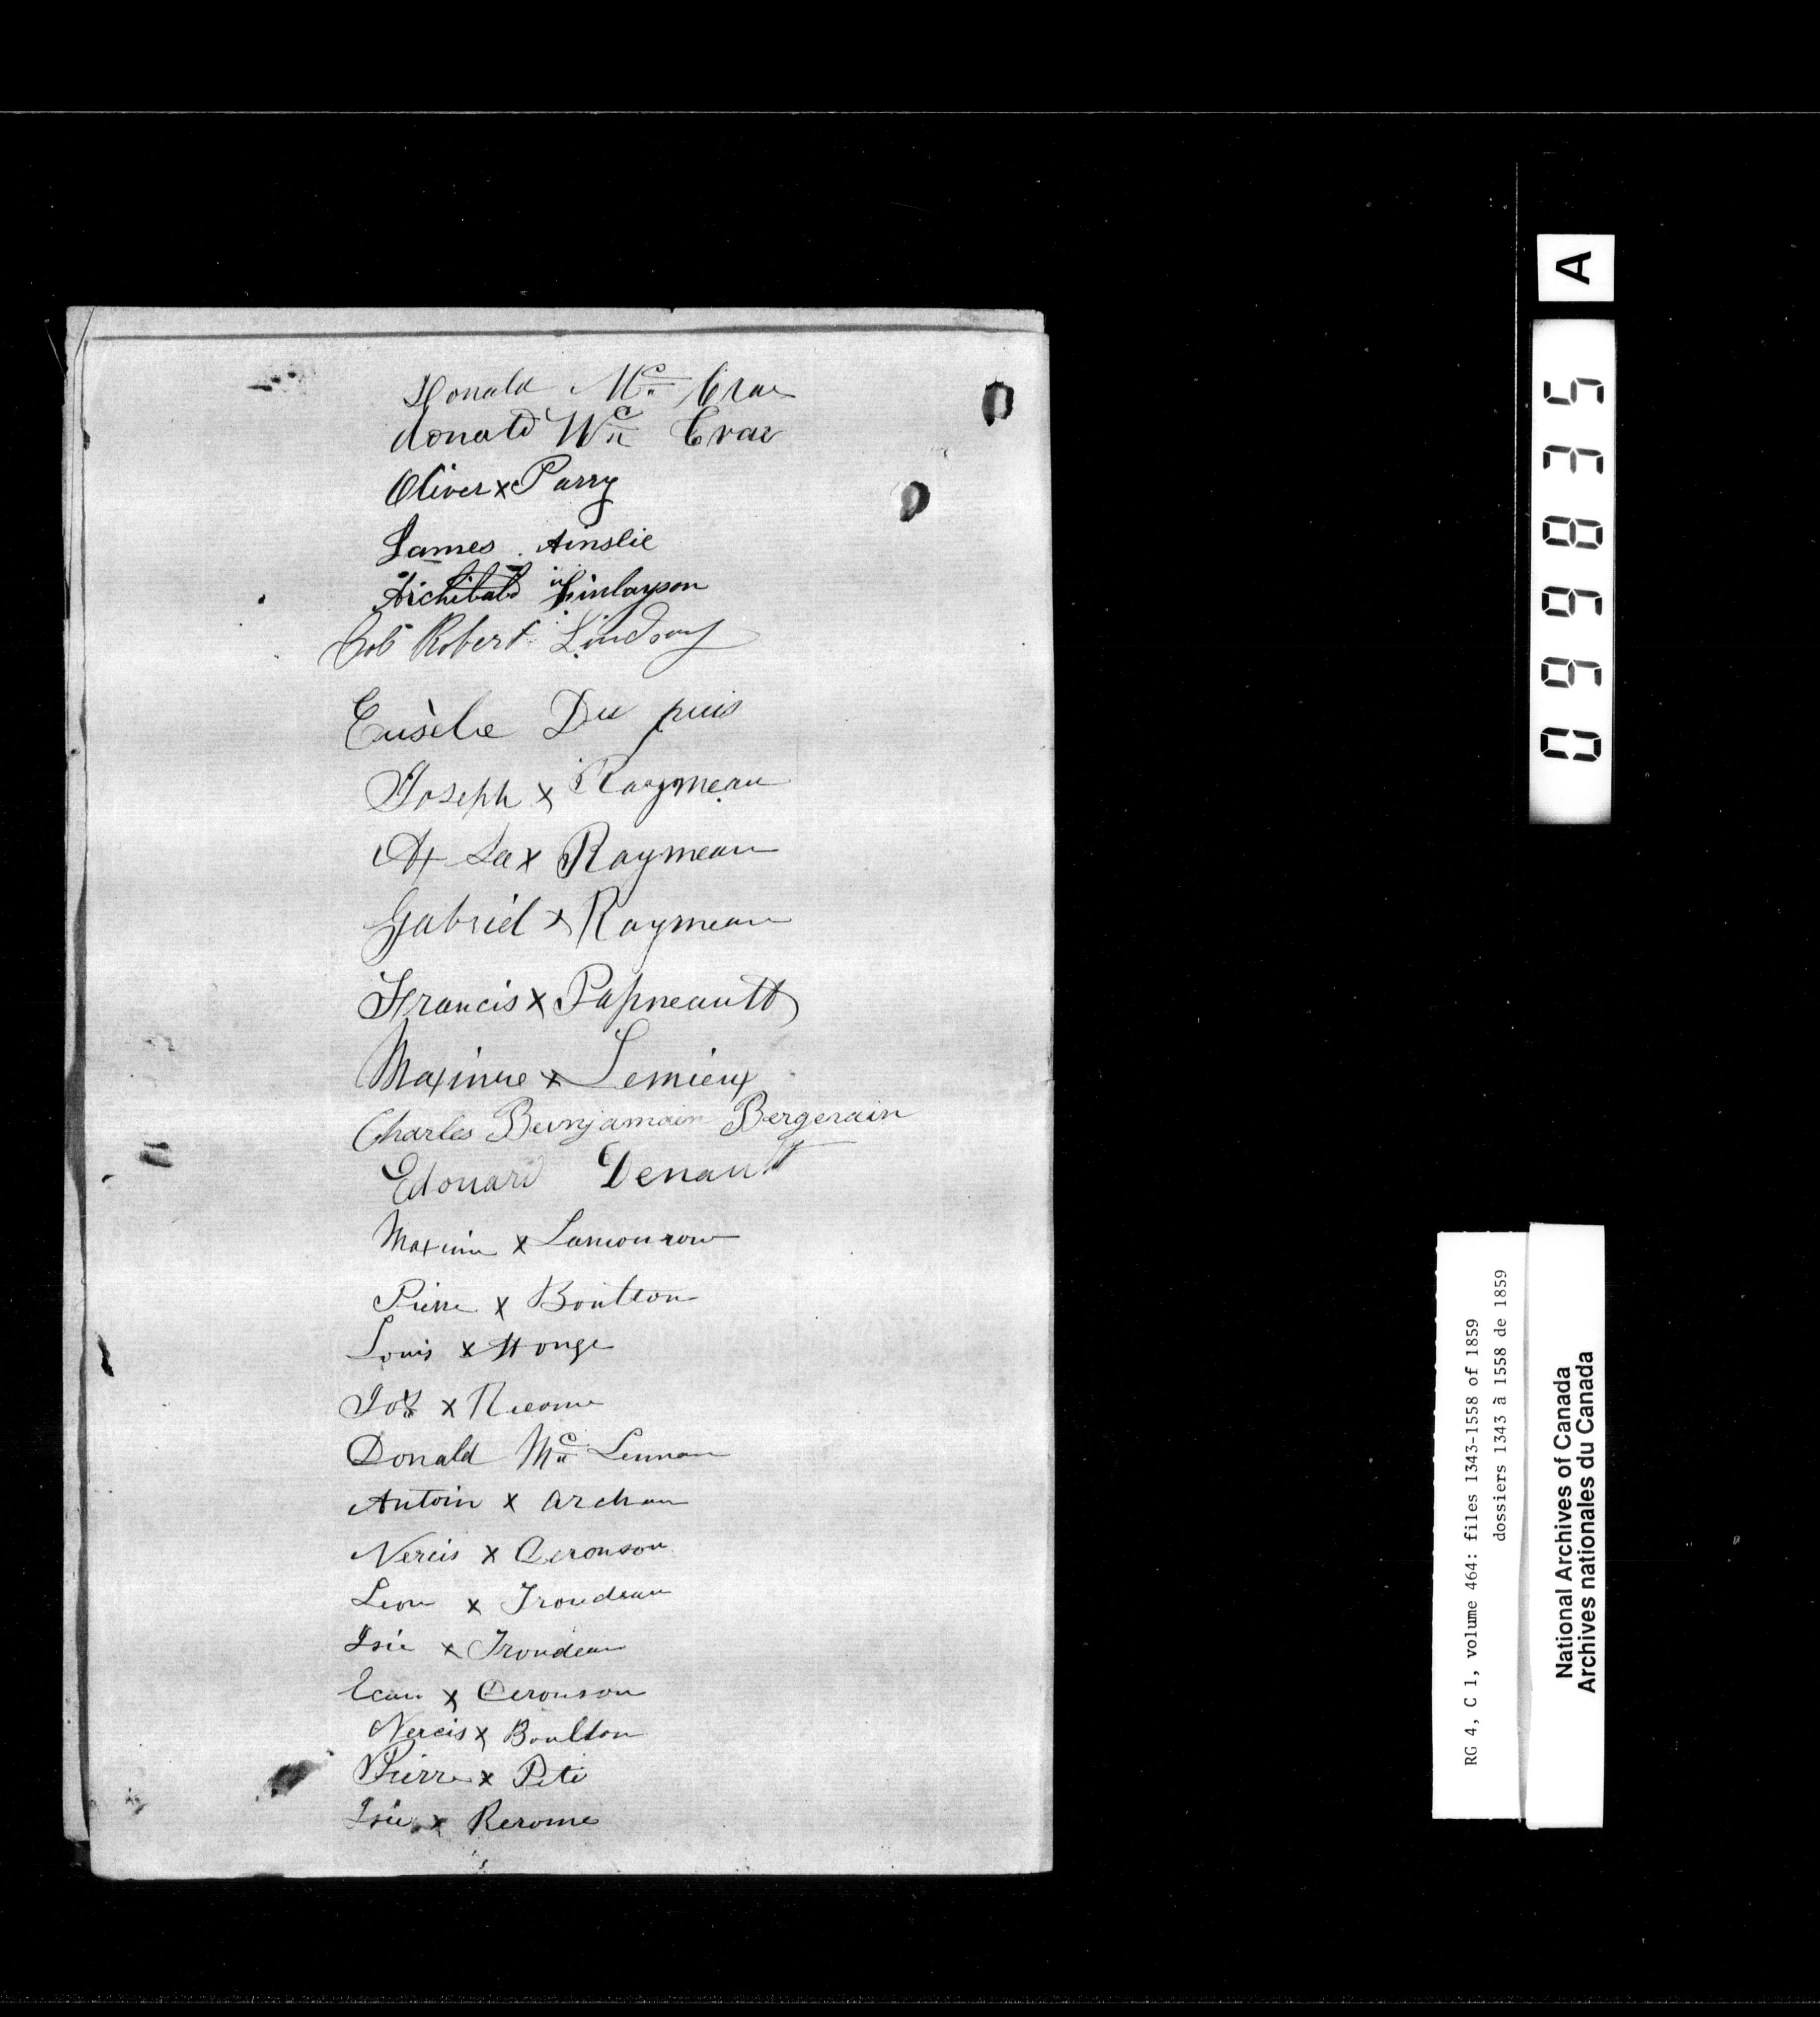 Donald Mc Crae
donald Mc Crae
Oliver x Parry
James Ainslie
Archibald Finlayson
Robert Lindsay
Eusèbe Du puis
Joseph x Raymeau
x Raymeau
Gabriel x Raymeau
Francis x Papneault
Maxime x Lemieux
Charles Bunjamain Bergerain
Edouard Denault
Maxime x Lamouroux
Pierre x Boulton
Louis x Honge
Jos x
Donald Mc Lennan
Antoin x Archam
Nercis x Ceronson
Leon x Troudeau
Isie x Troudeau
x Ceronson
Nercis x Boulton
Pierre x Peti
Isie x Rerome
A
099835
RG 4, C 1, volume 464: files 1343-1558 of 1859
dossiers 1343 à 1558 de 1859
National Archives of Canada
Archives nationales du Canada